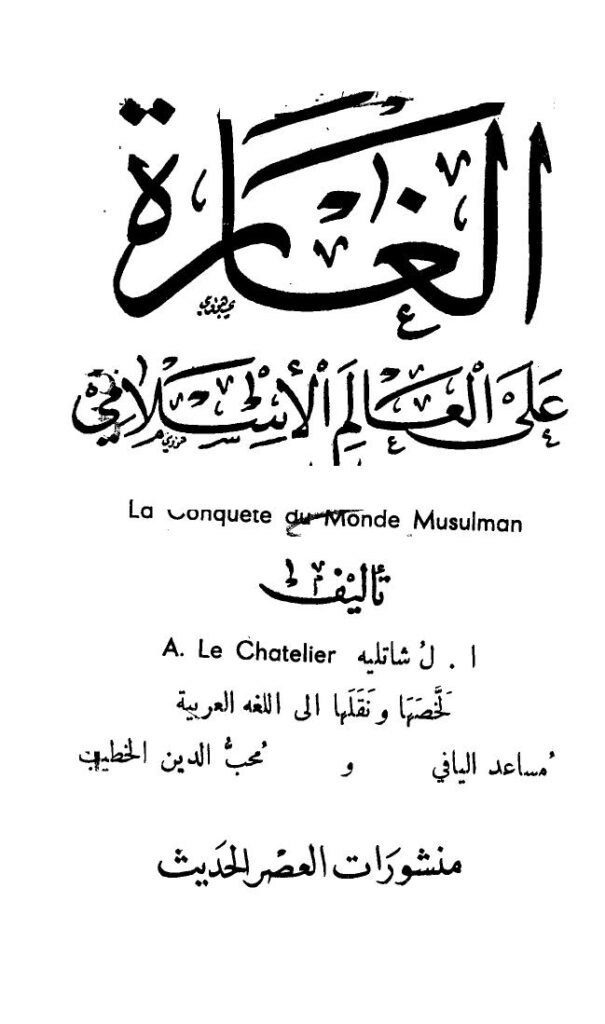 الغارة
عَلَى العَالَمِ الْأُسِْلَامِي
La Conquete du Monde Musulman
تأليف
ا . لُ شاتليه A. Le Chatelier
لَخَّصَهَا و نَقَلَها الى اللغه العربية
مُساعد اليافي و مُحبُّ الدين الخطيب
منشورَات العصْر الحَديث